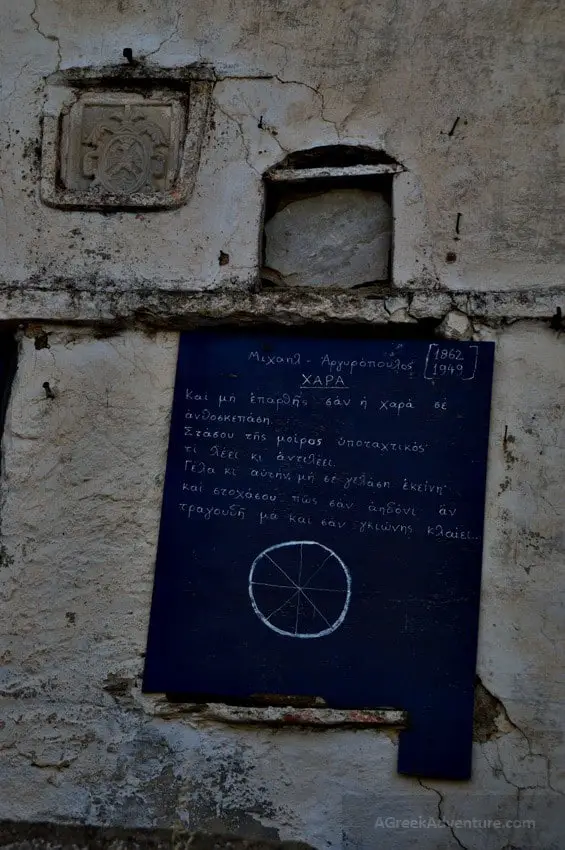 Μιχαηλ - Αργυρόπουλος
[1862
1949]
ΧΑΡΑ
Και μή ἐπαρθῆς σάν ἡ χαρά σέ
ἀνθοσκεπάση.
Στάσου τῆς μοίρας ὑποταχτικός·
τί λέει κι ἀντιλέει.
Γέλα κι αὐτήν, μή σέ γελάση ἐκείνη
καί στοχάσου πώς σάν ἀηδόνι ἄν
τραγουδῆ μα και σάν γκιώνης κλαίει...
AGreekAdventure.com